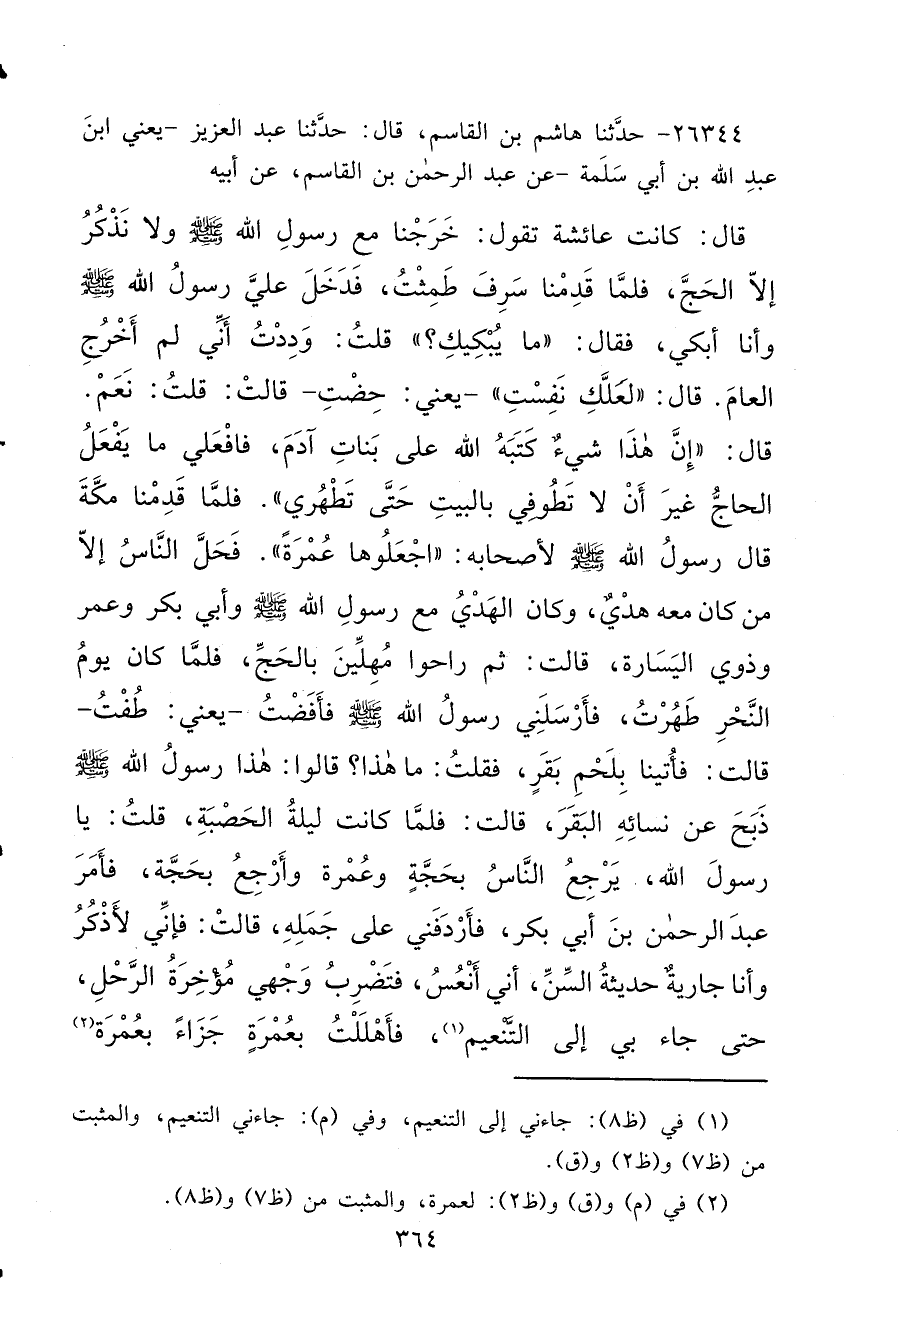 ٢٦٣٤٤- حدَّثنا هاشم بن القاسم، قال: حدَّثنا عبد العزيز -يعني ابنَ
عبدِ الله بن أبي سَلَمة -عن عبد الرحمٰن بن القاسم، عن أبيه
قال: كانت عائشة تقول: خَرَجْنا مع رسولِ الله ﷺ ولا نَذْكُرُ
إلاّ الحَجَّ، فلمَّا قَدِمْنا سَرِفَ طَمِثْتُ، فَدَخَلَ عليَّ رسولُ الله ﷺ
وأنا أبكي، فقال: «ما يُبْكِيكِ؟» قلتُ: وَدِدْتُ أَنِّي لم أَخْرُجِ
العامَ. قال: «لَعَلَّكِ نَفِسْتِ» -يعني: حِضْتِ- قالتْ: قلتُ: نَعَمْ.
قال: «إِنَّ هٰذَا شيءٌ كَتَبَهُ الله على بَناتِ آدَمَ، فافْعَلي ما يَفْعَلُ
الحاجُّ غيرَ أَنْ لا تَطُوفِي بالبيتِ حَتَّى تَطْهُري». فلمَّا قَدِمْنا مكَّةَ
قال رسولُ الله ﷺ لأصحابه: «اجْعَلُوها عُمْرَةً». فَحَلَّ النَّاسُ إلاّ
من كان معه هدْيٌ، وكان الهَدْيُ مع رسولِ الله ﷺ وأبي بكر وعمر
وذوي اليَسَارة، قالت: ثم راحوا مُهِلِّينَ بالحَجِّ، فلمَّا كان يومُ
النَّحْرِ طَهُرْتُ، فأَرْسَلَنِي رسولُ الله ﷺ فأَفَضْتُ -يعني: طُفْتُ-
قالت: فأُتينا بِلَحْمِ بَقَرٍ، فقلتُ: ما هٰذا؟ قالوا: هٰذا رسولُ الله ﷺ
ذَبَحَ عن نسائِهِ البَقَرَ، قالت: فلمَّا كانت ليلةُ الحَصْبَةِ، قلتُ: يا
رسولَ الله، يَرْجِعُ النَّاسُ بحَجَّةٍ وعُمْرة وأَرْجِعُ بحَجَّة، فأَمَرَ
عبدَ الرحمٰن بنَ أبي بكر، فأَرْدَفَني على جَمَلِهِ، قالتْ: فإنِّي لأَذْكُرُ
وأنا جاريةٌ حديثةُ السِّنِّ، أني أَنْعُسُ، فتَضْرِبُ وَجْهي مُؤْخِرَةُ الرَّحْلِ،
حتى جاء بي إلى التَّنْعيم(١)، فأَهْلَلْتُ بعُمْرَةٍ جَزَاءً بعُمْرَة(٢)
(١) في (ظ٨): جاءني إلى التنعيم، وفي (م): جاءني التنعيم، والمثبت
من (ظ٧) و(ظ٢) و(ق).
(٢) في (م) و(ق) و(ظ٢): لعمرة، والمثبت من (ظ٧) و(ظ٨).
٣٦٤